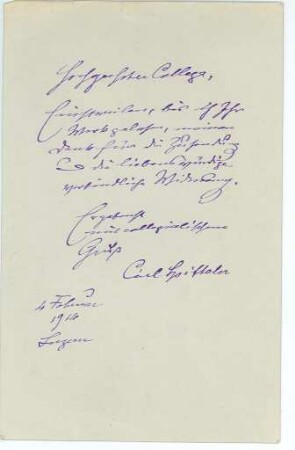 Hochgeehrter College,
Einstweilen, bis ich Ihr
Werk gelesen, meinen
Dank für die Zusendung
und die liebenswürdige
verbindliche Widmung.
Ergebenst
mit collegialischem
Gruss
Carl Spitteler
4 Februar
1914
Luzern